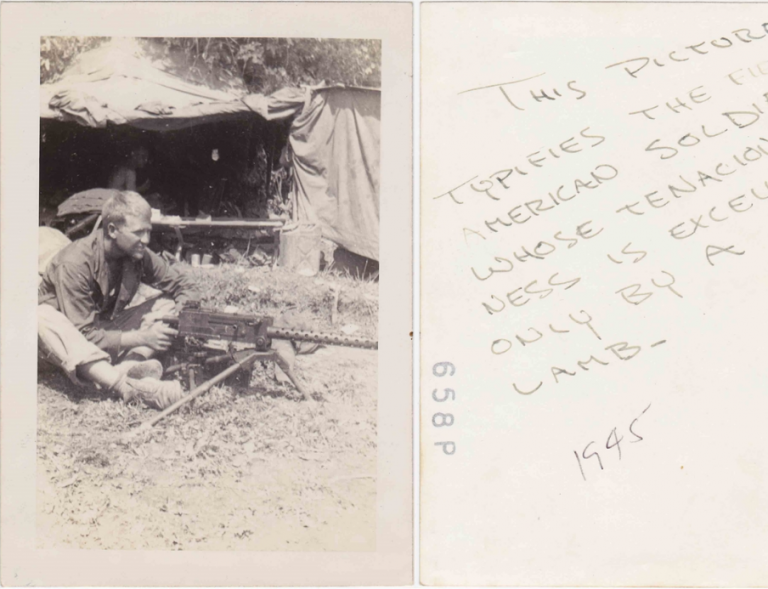 THIS PICTURE
TYPIFIES THE FI
AMERICAN SOLDI
WHOSE TENACIOU
NESS IS EXCELL
ONLY BY A
LAMB-
1945
658P